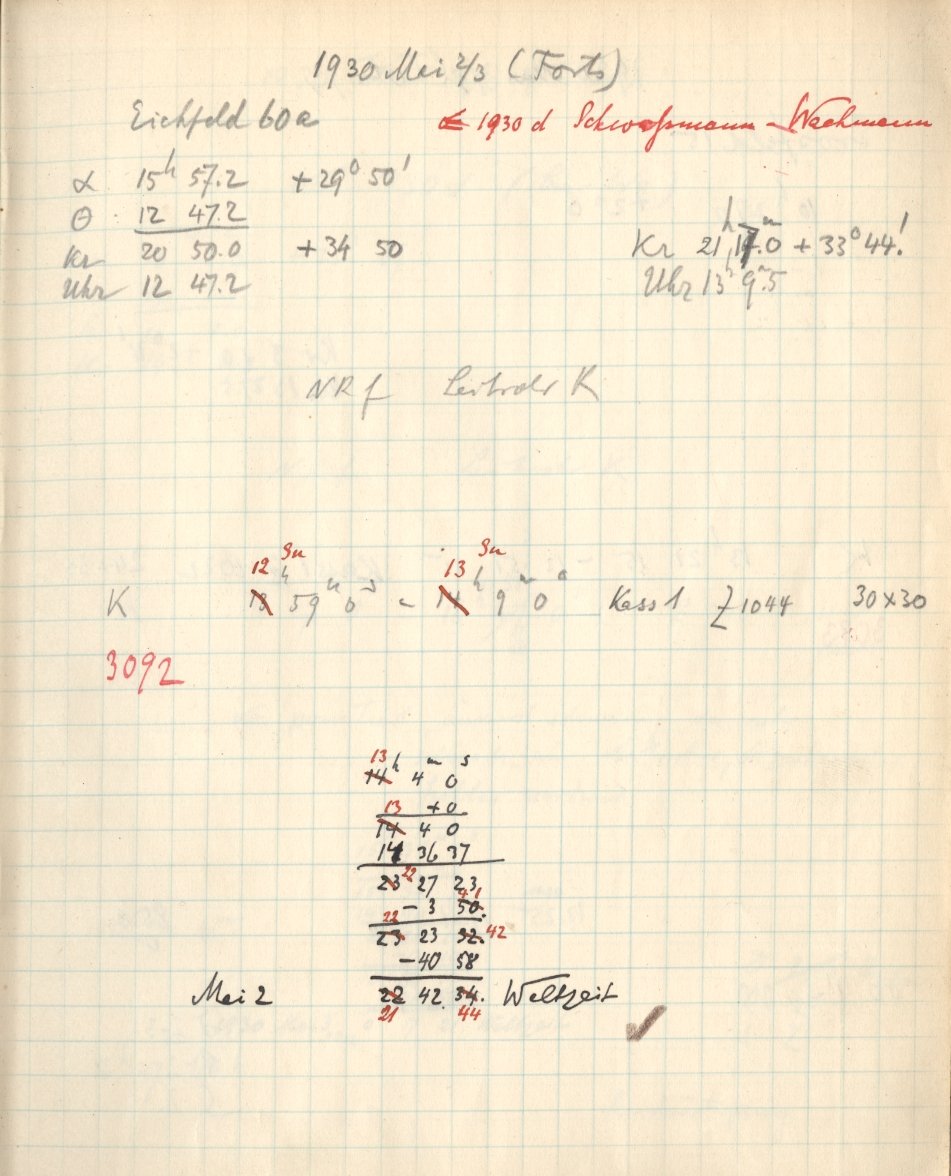 1930 Mai 2/3 (Forts)
Eichfeld 60a
1930 d Schwaßmann - Wachmann
α 15h 57.2 +29° 50'
θ 12 47.2
Kr 20 50.0 +34 50
Uhr 12 47.2
Kr 21h 17m.0 +33° 44'!
Uhr 13h 9m.5
NRf Leitrohr K
Sn Sn
12 13
K 13h 59m 0s - 14h 9m 0s Kass 1 Z 1044 30×30
3092
13
14h 4m 0s
13 +0
14 4 0
14 36 37
22
23 27 23
41
- 3 50.
22
23 23 32. 42
-40 58
Mai 2 22 42 34. Weltzeit
21 44